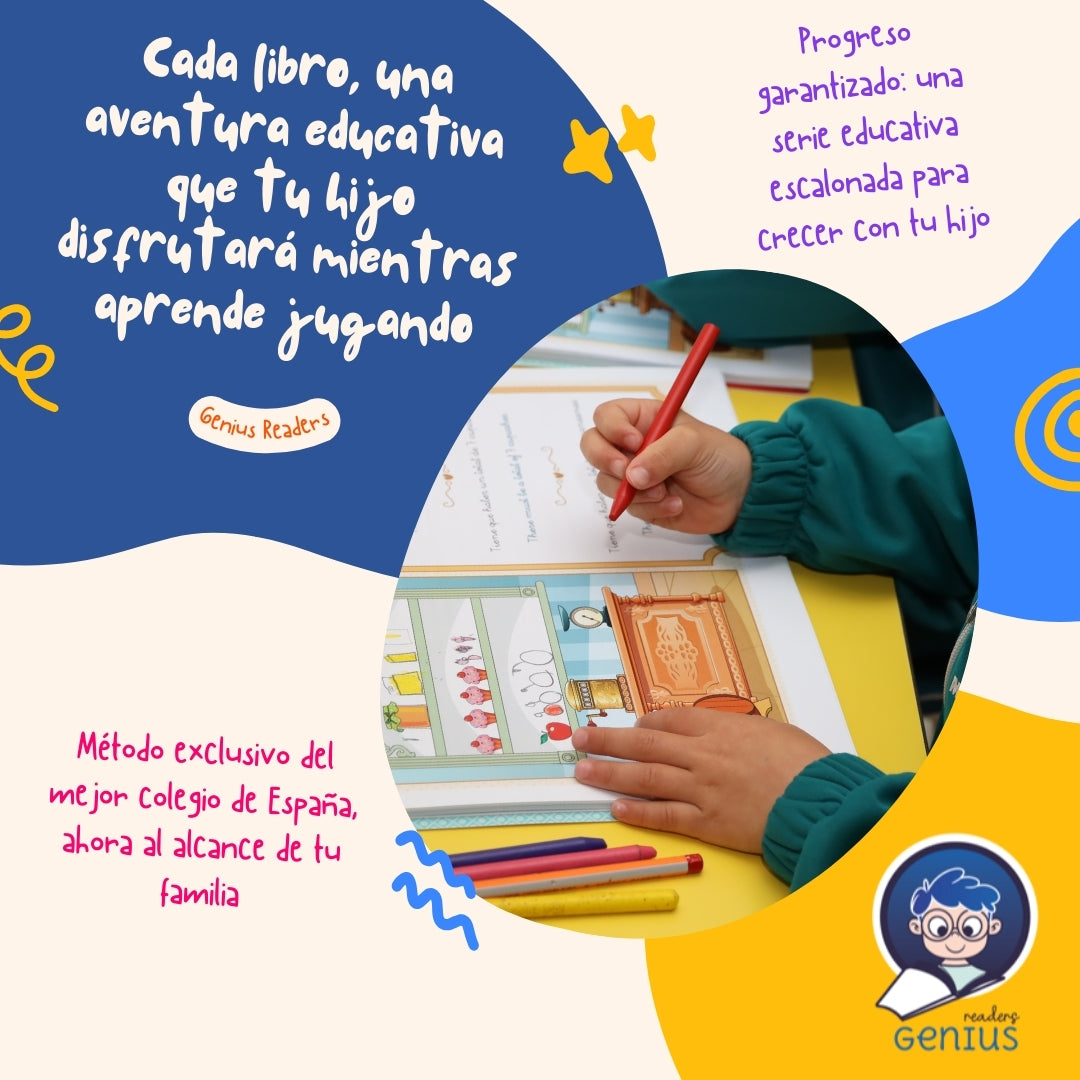 Cada libro, una
aventura educativa
que tu hijo
disfrutará mientras
aprende jugando
Genius Readers
Progreso
garantizado: una
serie educativa
escalonada para
crecer con tu hijo
Tiene que haber un total de 7
There must be a total of 7 cupcakes
Tiene que haber
There
Método exclusivo del
mejor colegio de España,
ahora al alcance de tu
familia
readers
GENIUS